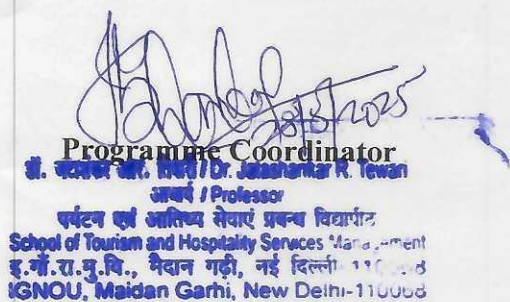 28/5/2025
Programme Coordinator
डॉ. जटाशंकर आर. तिवारी / Dr. Jatashankar R. Tewari
आचार्य / Professor
पर्यटन एवं आतिथ्य सेवाएं प्रबन्ध विद्यापीठ
School of Tourism and Hospitality Services Management
इ.गाँ.रा.मु.वि., मैदान गढ़ी, नई दिल्ली-110068
IGNOU, Maidan Garhi, New Delhi-110068